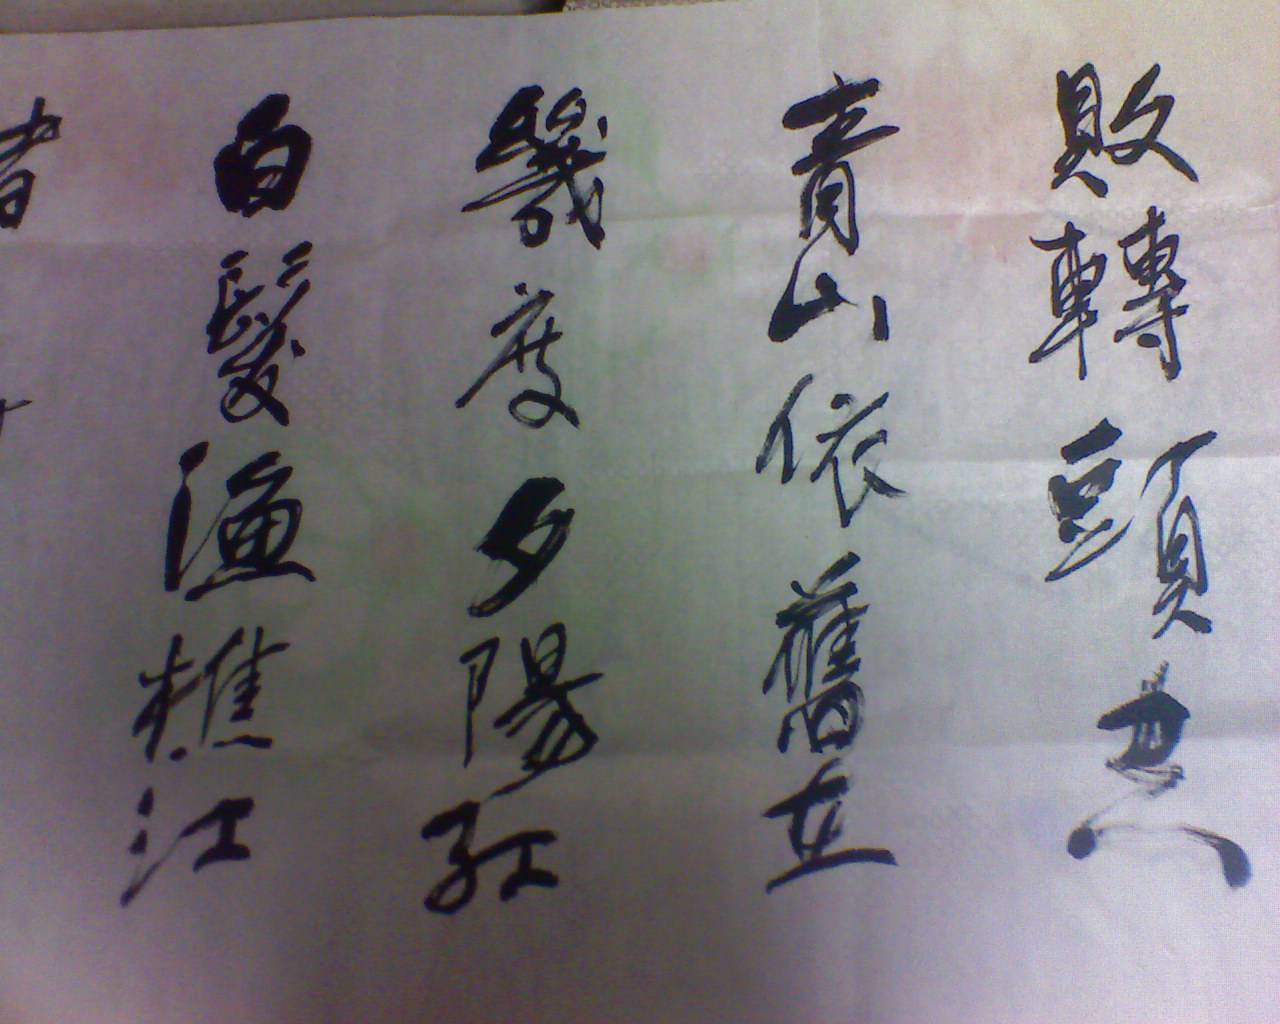 敗轉頭
青山依舊在
幾度夕陽紅
白髮漁樵江